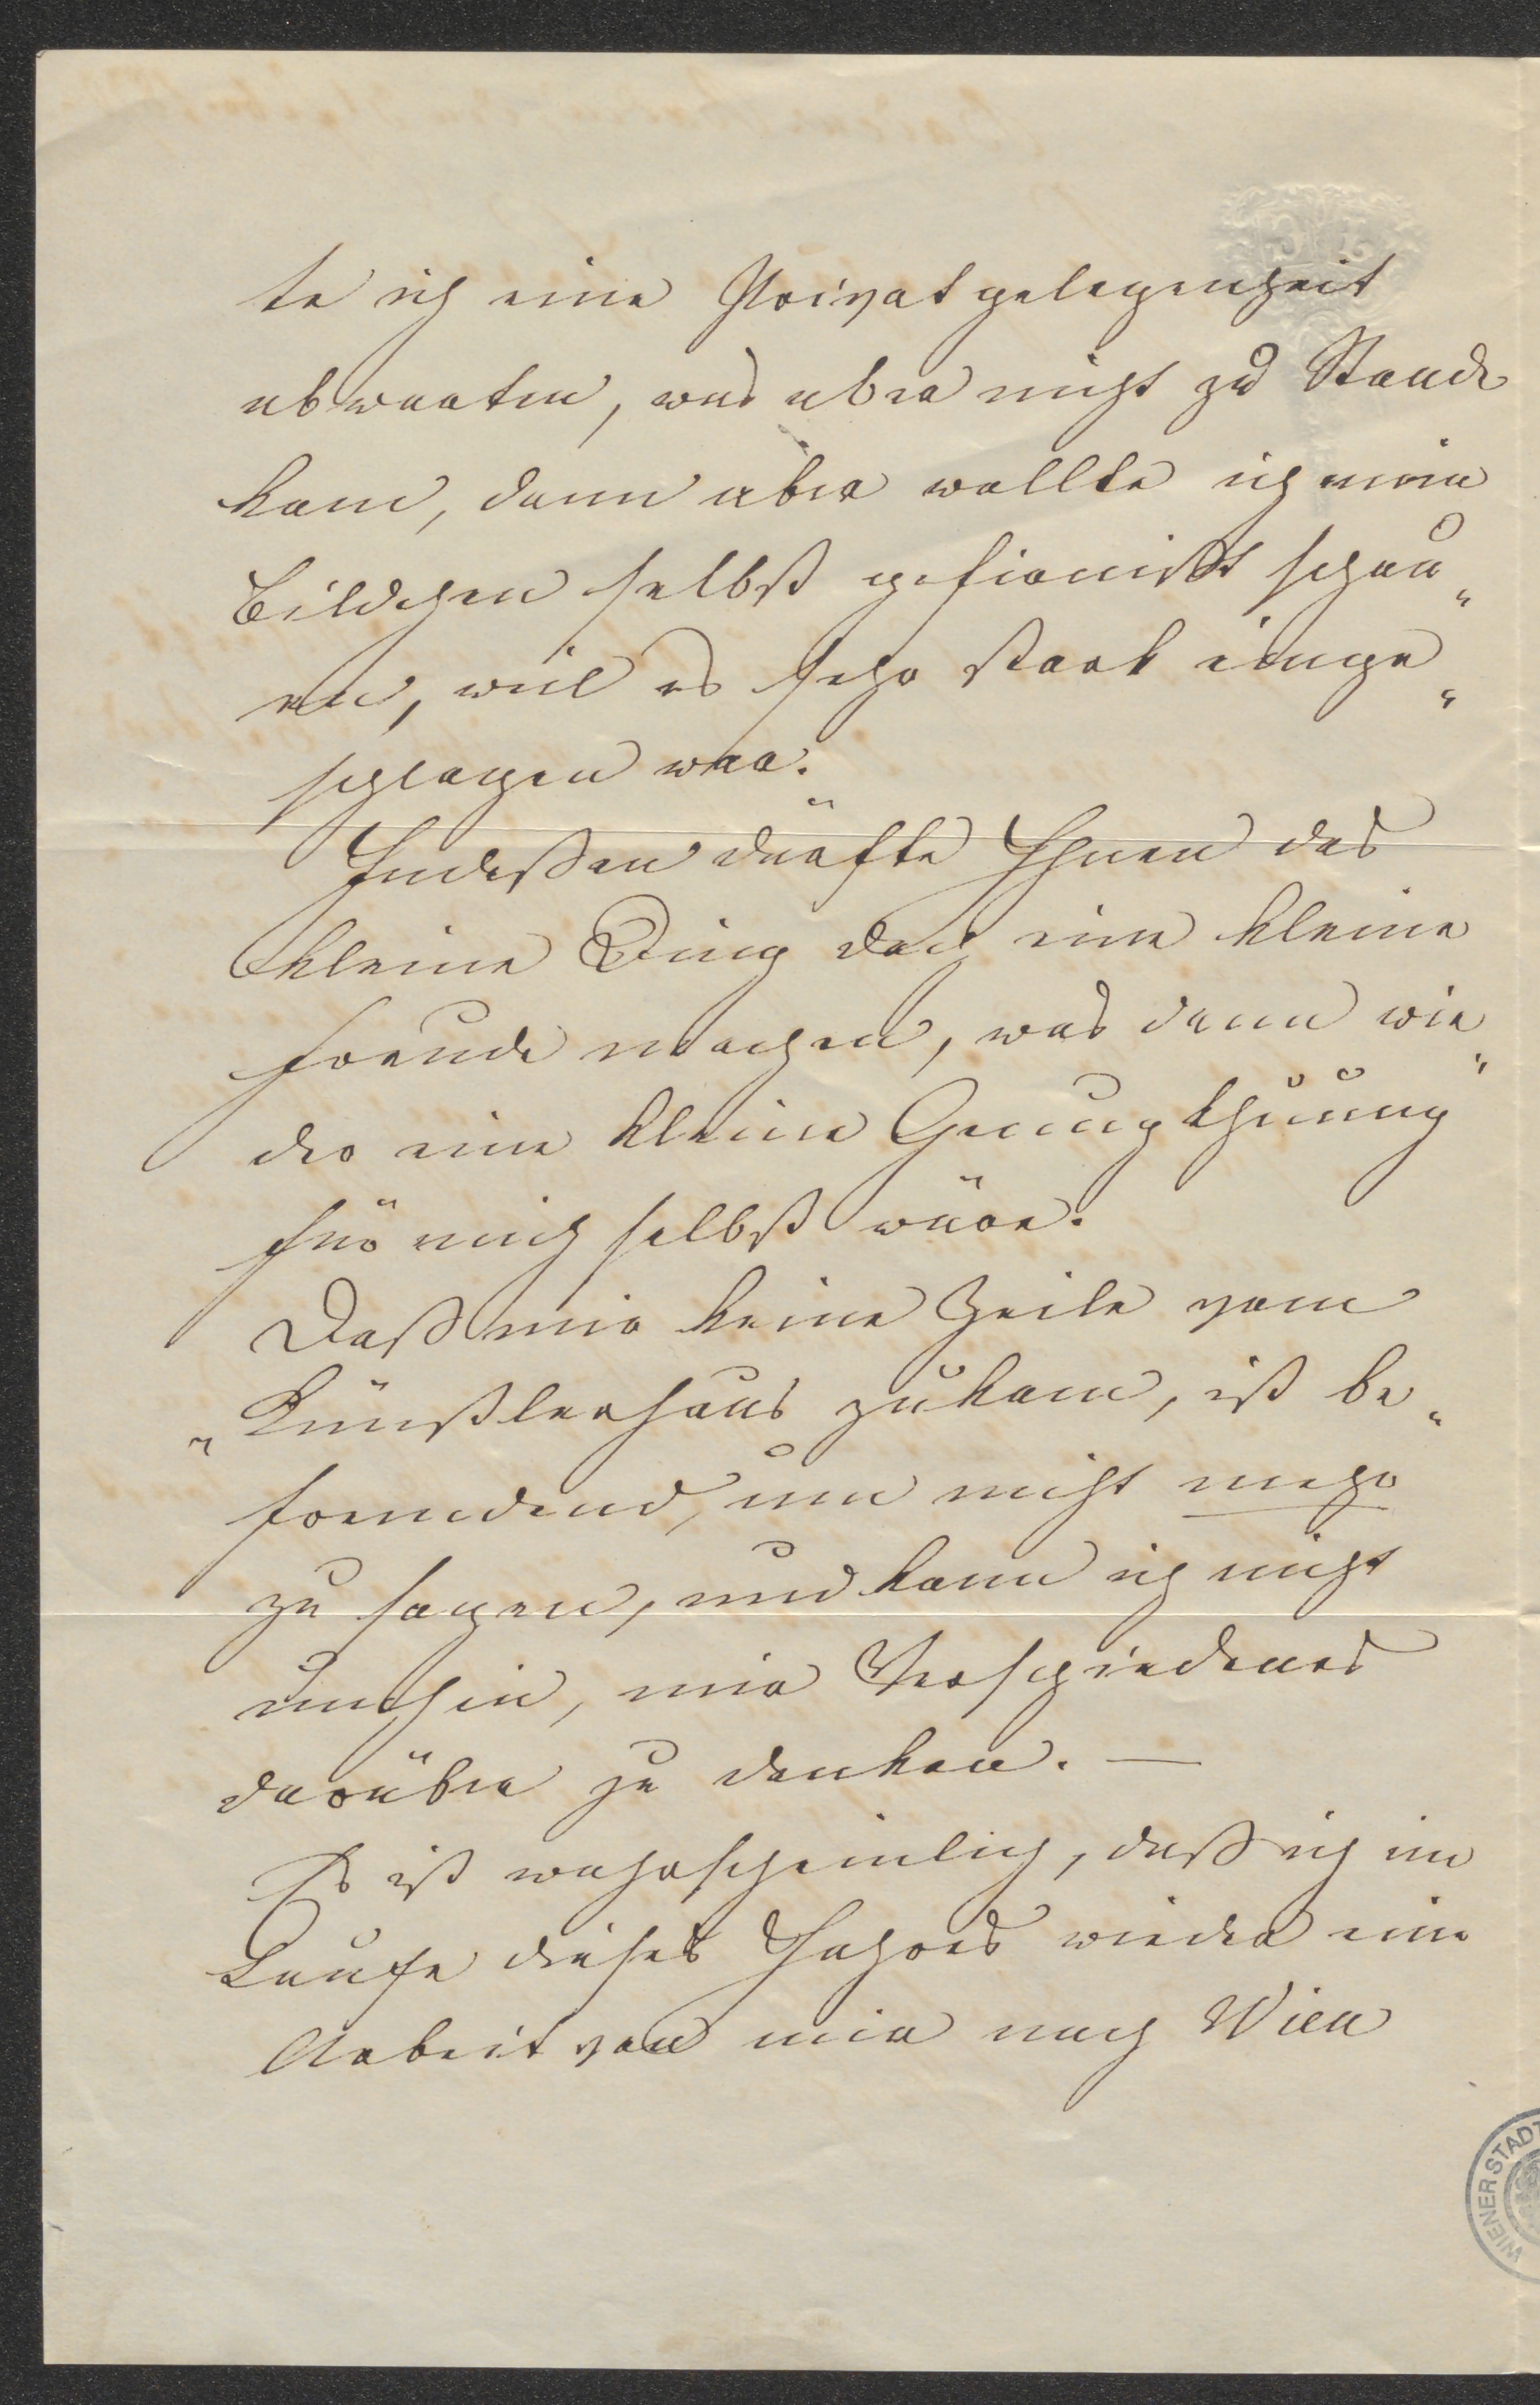 te ich eine Privatgelegenheit
abwarten, was aber nicht zu Stande
kam, dann aber wollte ich mein
Bildchen selbst gefirnißt schau„
en, weil es sehr stark einge„
schlagen war.
Indeßen dürfte Ihnen das
kleine Ding doch eine kleine
Freude machen, was dann wie„
der eine kleine Genugthuung
für mich selbst wäre.
Daß mir keine Zeile vom
„Künstlerhaus zukam, ist be„
fremdend, um nicht mehr
zu sagen, und kann ich nicht
umhin, mir Verschiedenes
darüber zu denken. —
Es ist wahrscheinlich, daß ich im
Laufe dieses Jahres wieder eine
Arbeit von mir nach Wien
WIENER STADT